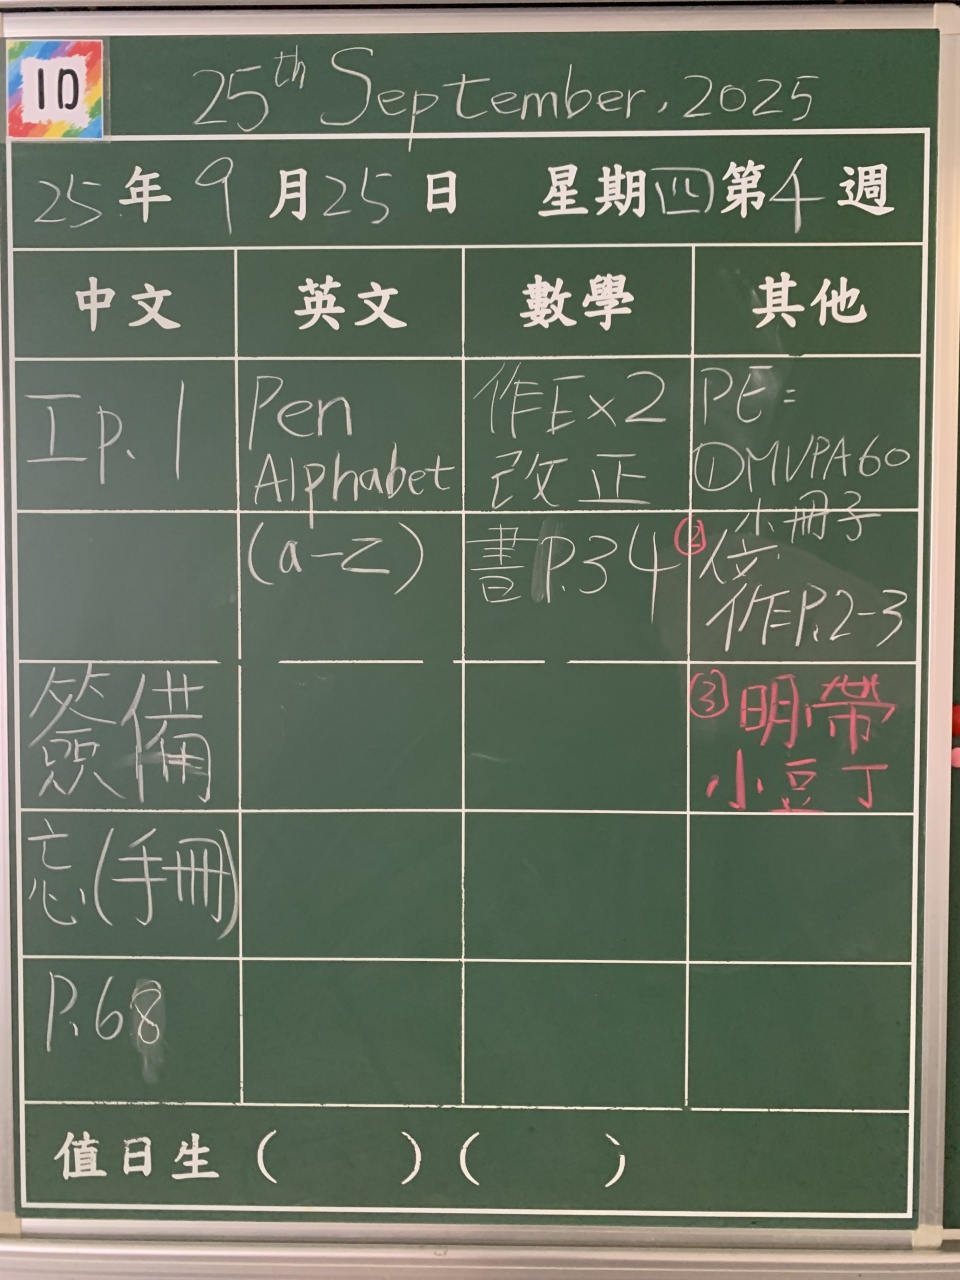 1D
25th September, 2025
25年9月25日 星期四第4週
中文 英文 數學 其他
工p.1
簽備
忘(手冊)
P.68
Pen
Alphabet
(a-z)
作E×2
改正
書P.34
PE:
①MVPA60
小冊子
②
作P.2-3
③明帶
小豆丁
值日生 ( ) ( )